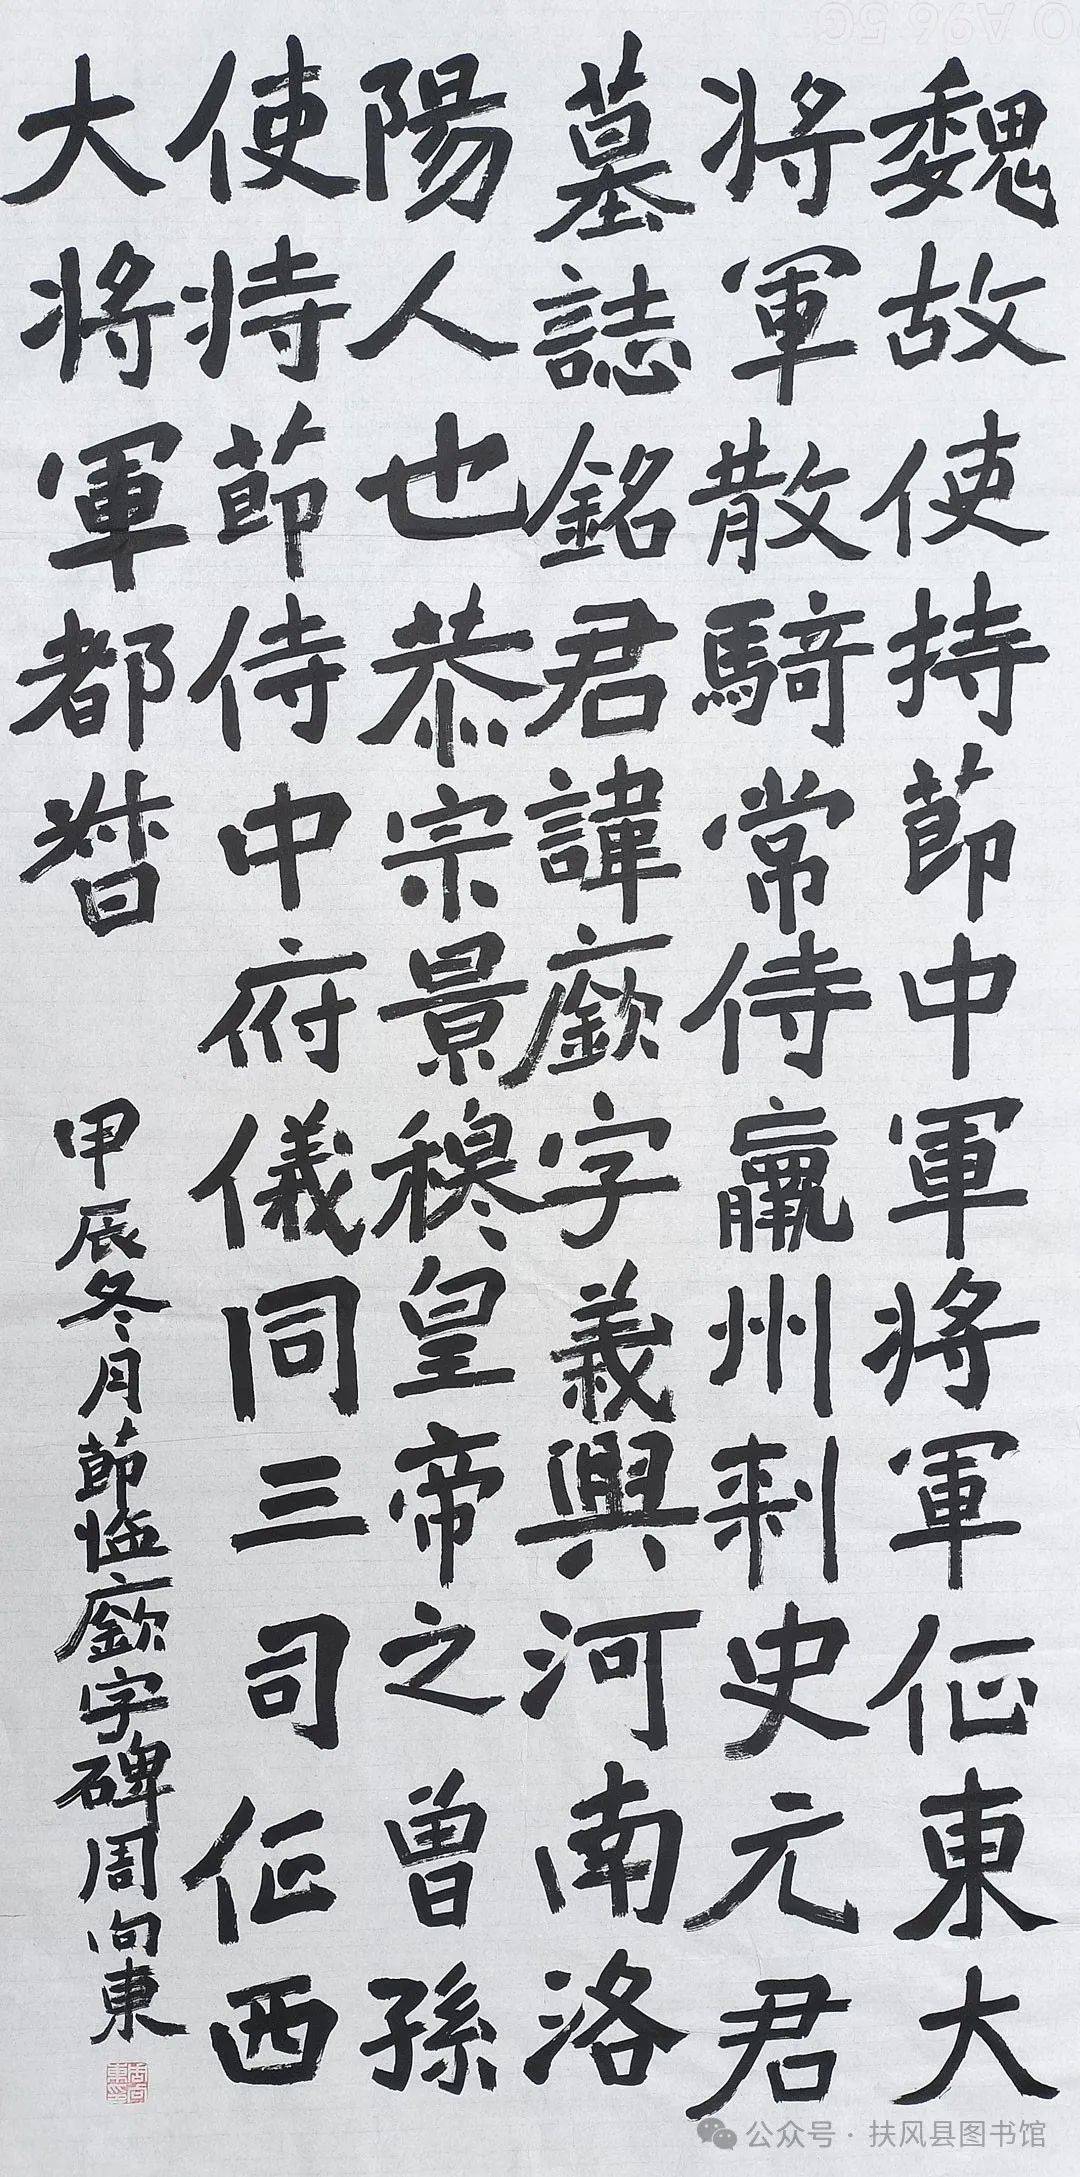 魏故使持節中軍將軍征東大
將軍散騎常侍嬴州刺史元君
墓誌銘君諱廞字義興河南洛
陽人也恭宗景穆皇帝之曾孫
使持節侍中府儀同三司征西
大將軍都督
甲辰冬月節臨廞字碑周向東
公众号·扶风县图书馆